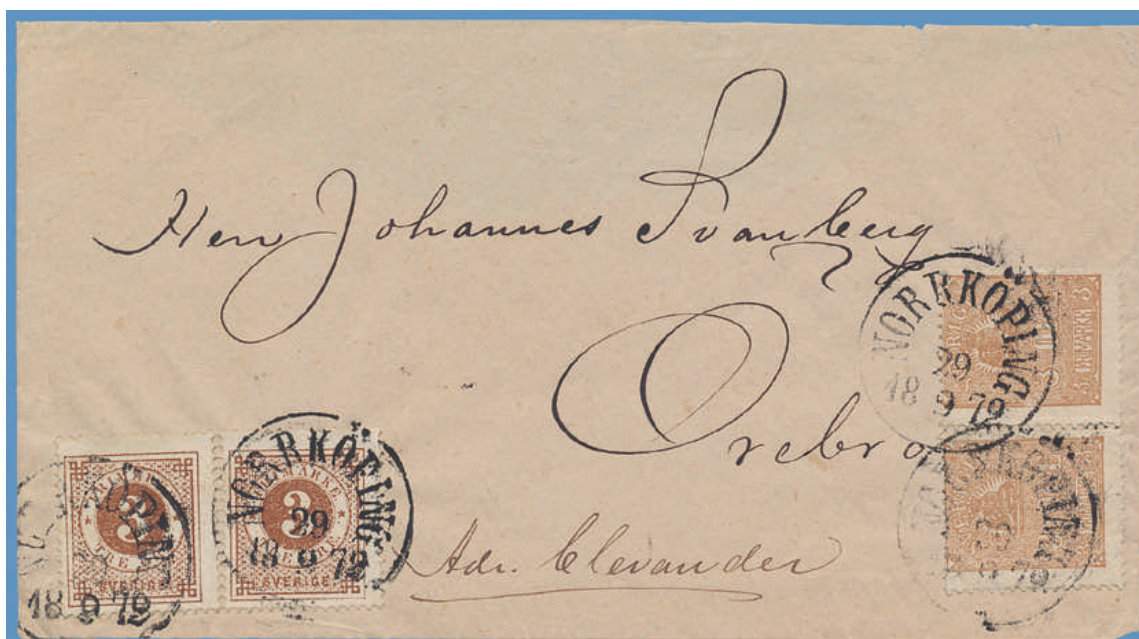 Herr Johannes Svanberg
Örebro
Adr. Clevander
NORRKÖPING
29
18 9 79
NORRKÖPING
29
18 9 79
18 9 79
3
FRIMÄRKE
3
SVERIGE
SVERIGE
3 FRIMÄRKE 3